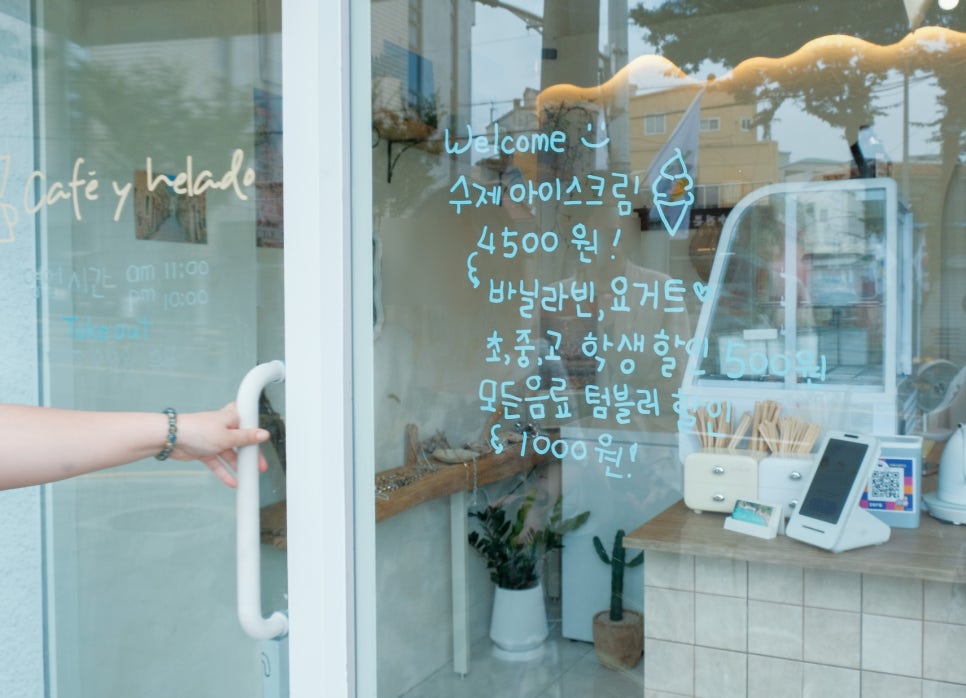 Café y helado
영업시간 am 11:00
pm 10:00
Take out
Welcome
수제 아이스크림
4500 원!
바닐라빈, 요거트♥
초,중,고 학생 할인 500원
모든음료 텀블러 할인
1000원!